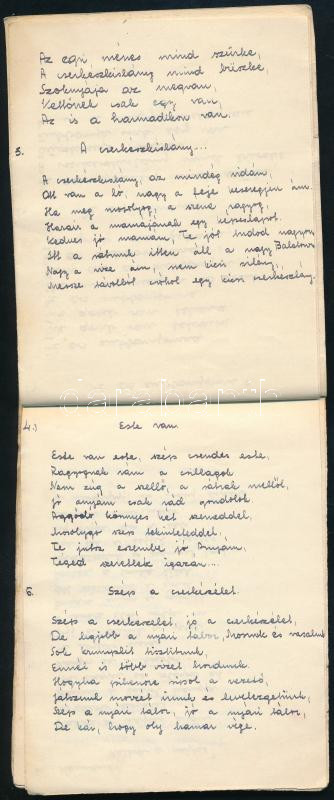 Az egri ménes mind szürke,
A cserkészkislány mind büszke,
Szoknyája az megvan,
Kettőnek csak egy van,
Az is a harmadikon van.
3. A cserkészkislány...
A cserkészkislány, az mindég vidám,
Ott van a ló, nagy a feje keseregjen ám.
Ha meg mosolyog, a szeme ragyog,
Haván a mamájának egy képeslapot.
Kedves jó mamám, Te jól tudod nagyon,
Itt a sátrunk itten áll a nagy Balaton
Nagy a vize ám, nem kicsi silány,
Messze távolból csókol egy kicsi cserkészlány.
darabanth
4.) Este van
Este van este, szép csendes este,
Ragyognak rám a csillagok
Nem zúg a szellő, a sátrak mellől,
Jó anyám csak rád gondolok
Aggódó könnyes két szemeddel,
Mosolygó szép tekinteteddel.
Te jutsz eszembe jó Anyám,
Téged szeretlek igazán...
6. Szép a cserkészélet.
Szép a cserkészélet, jó a cserkészélet,
De legjobb a nyári tábor,
Sok krumplit tisztítunk,
Ennél is több vizet hordunk.
Hogyha pihenőre sípol a vezető,
Játszunk novát írunk és levelezgetünk,
Szép a nyári tábor, jó a nyári tábor,
De kár, hogy oly hamar vége.